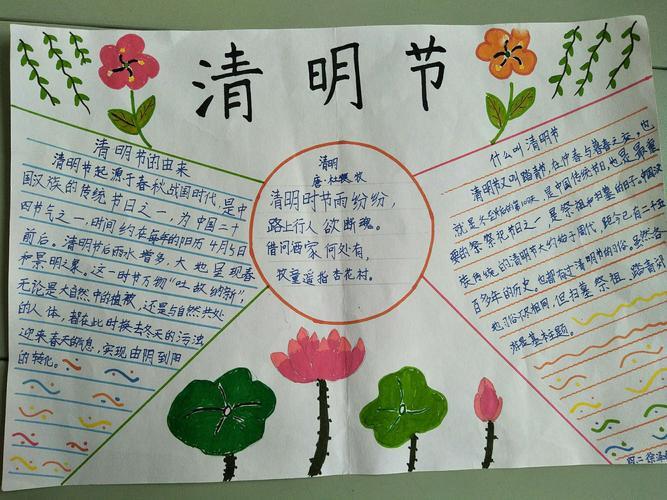 清明节
清明节的由来
清明节起源于春秋战国时代，是中
国汉族的传统节日之一，为中国二十
四节气之一，时间约在每年的阳历4月5日
前后。清明节后雨水增多，大地呈现春
和景明之象。这一时节万物“吐故纳新”
无论是大自然中的植被，还是与自然共处
的人体，都在此时换去冬天的污浊
迎来春天的气息，实现由阴到阳
的转化。
清明
唐·杜牧
清明时节雨纷纷，
路上行人欲断魂。
借问酒家何处有，
牧童遥指杏花村。
什么叫清明节
清明节又叫踏青节，在仲春与暮春之交，也
就是冬至后的第108天，是中国传统节日，也是最重
要的祭祀节日之一，是祭祖和扫墓的日子。中国汉
族传统的清明节大约始于周代，距今已有二千五
百多年的历史。也都有过清明节的习俗，虽然各
地习俗不尽相同，但扫墓祭祖、踏青郊
游是基本主题。
四二 徐